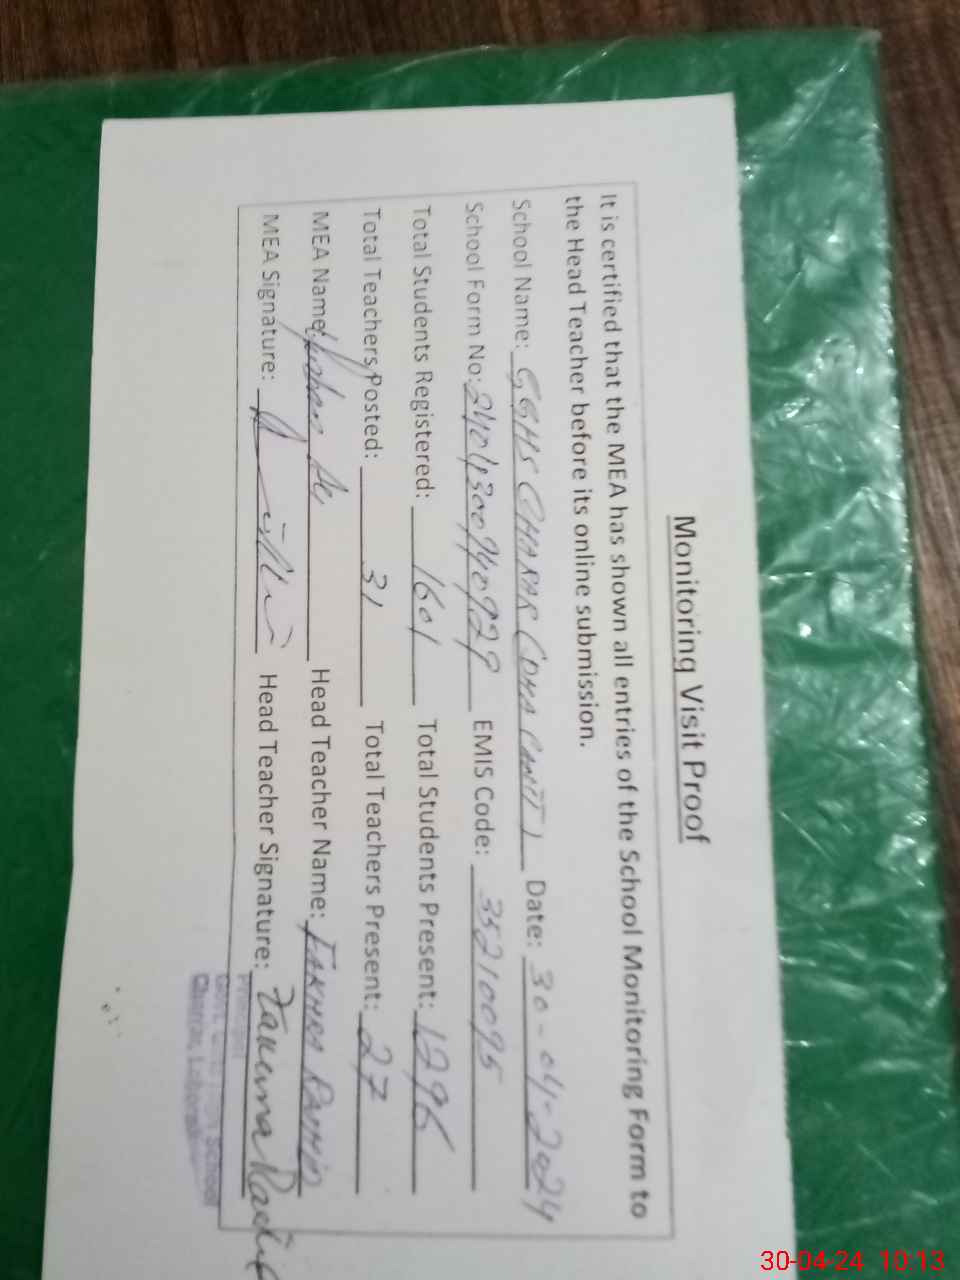 Monitoring Visit Proof
It is certified that the MEA has shown all entries of the School Monitoring Form to
the Head Teacher before its online submission.
School Name: GGHS CHARAR (DHA CANTT) Date: 30-04-2024
School Form No: EMIS Code: 35210095
Total Students Registered: 1601 Total Students Present: 1296
Total Teachers Posted: 31 Total Teachers Present: 27
MEA Name: Head Teacher Name: FAKHRA RASHID
MEA Signature: Head Teacher Signature:
Principal
Govt. School
Charrar, Lahore
30-04-24 10:13